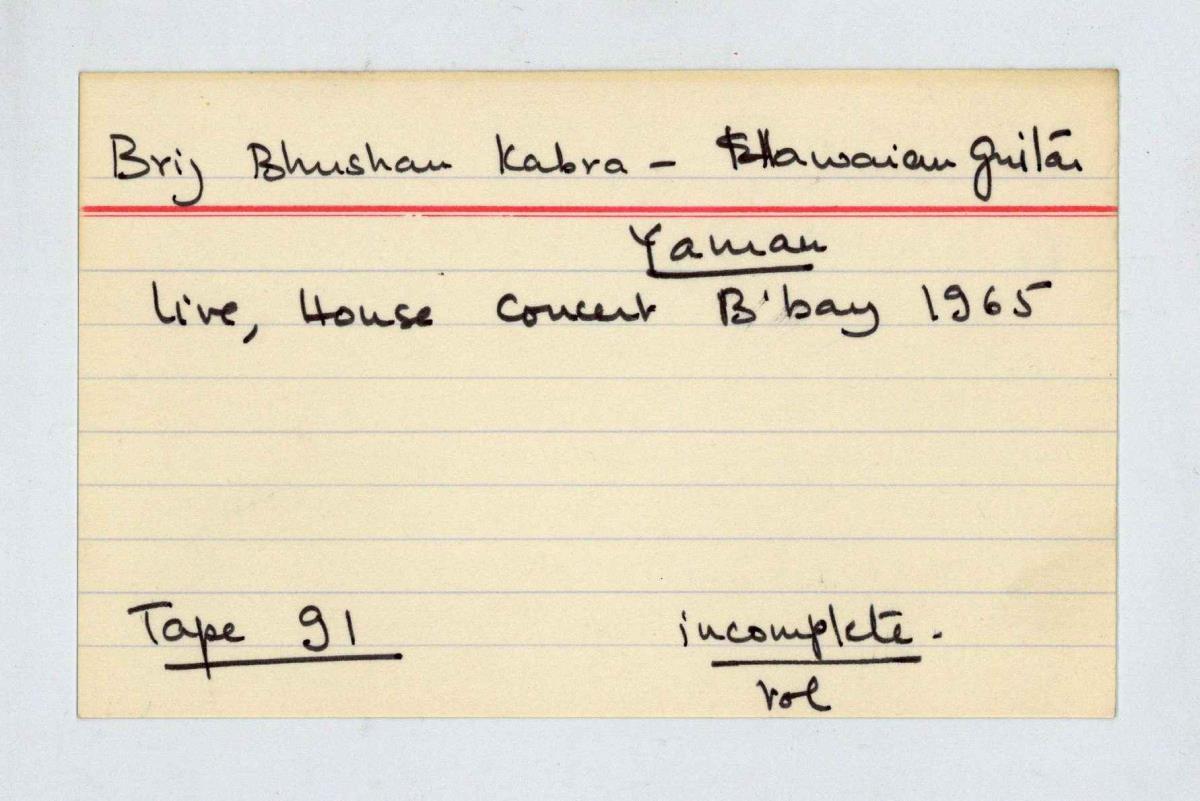 Brij Bhushan Kabra - Hawaian guitar
Yaman
live, House Concert B'bay 1965
Tape 91 incomplete.
vol